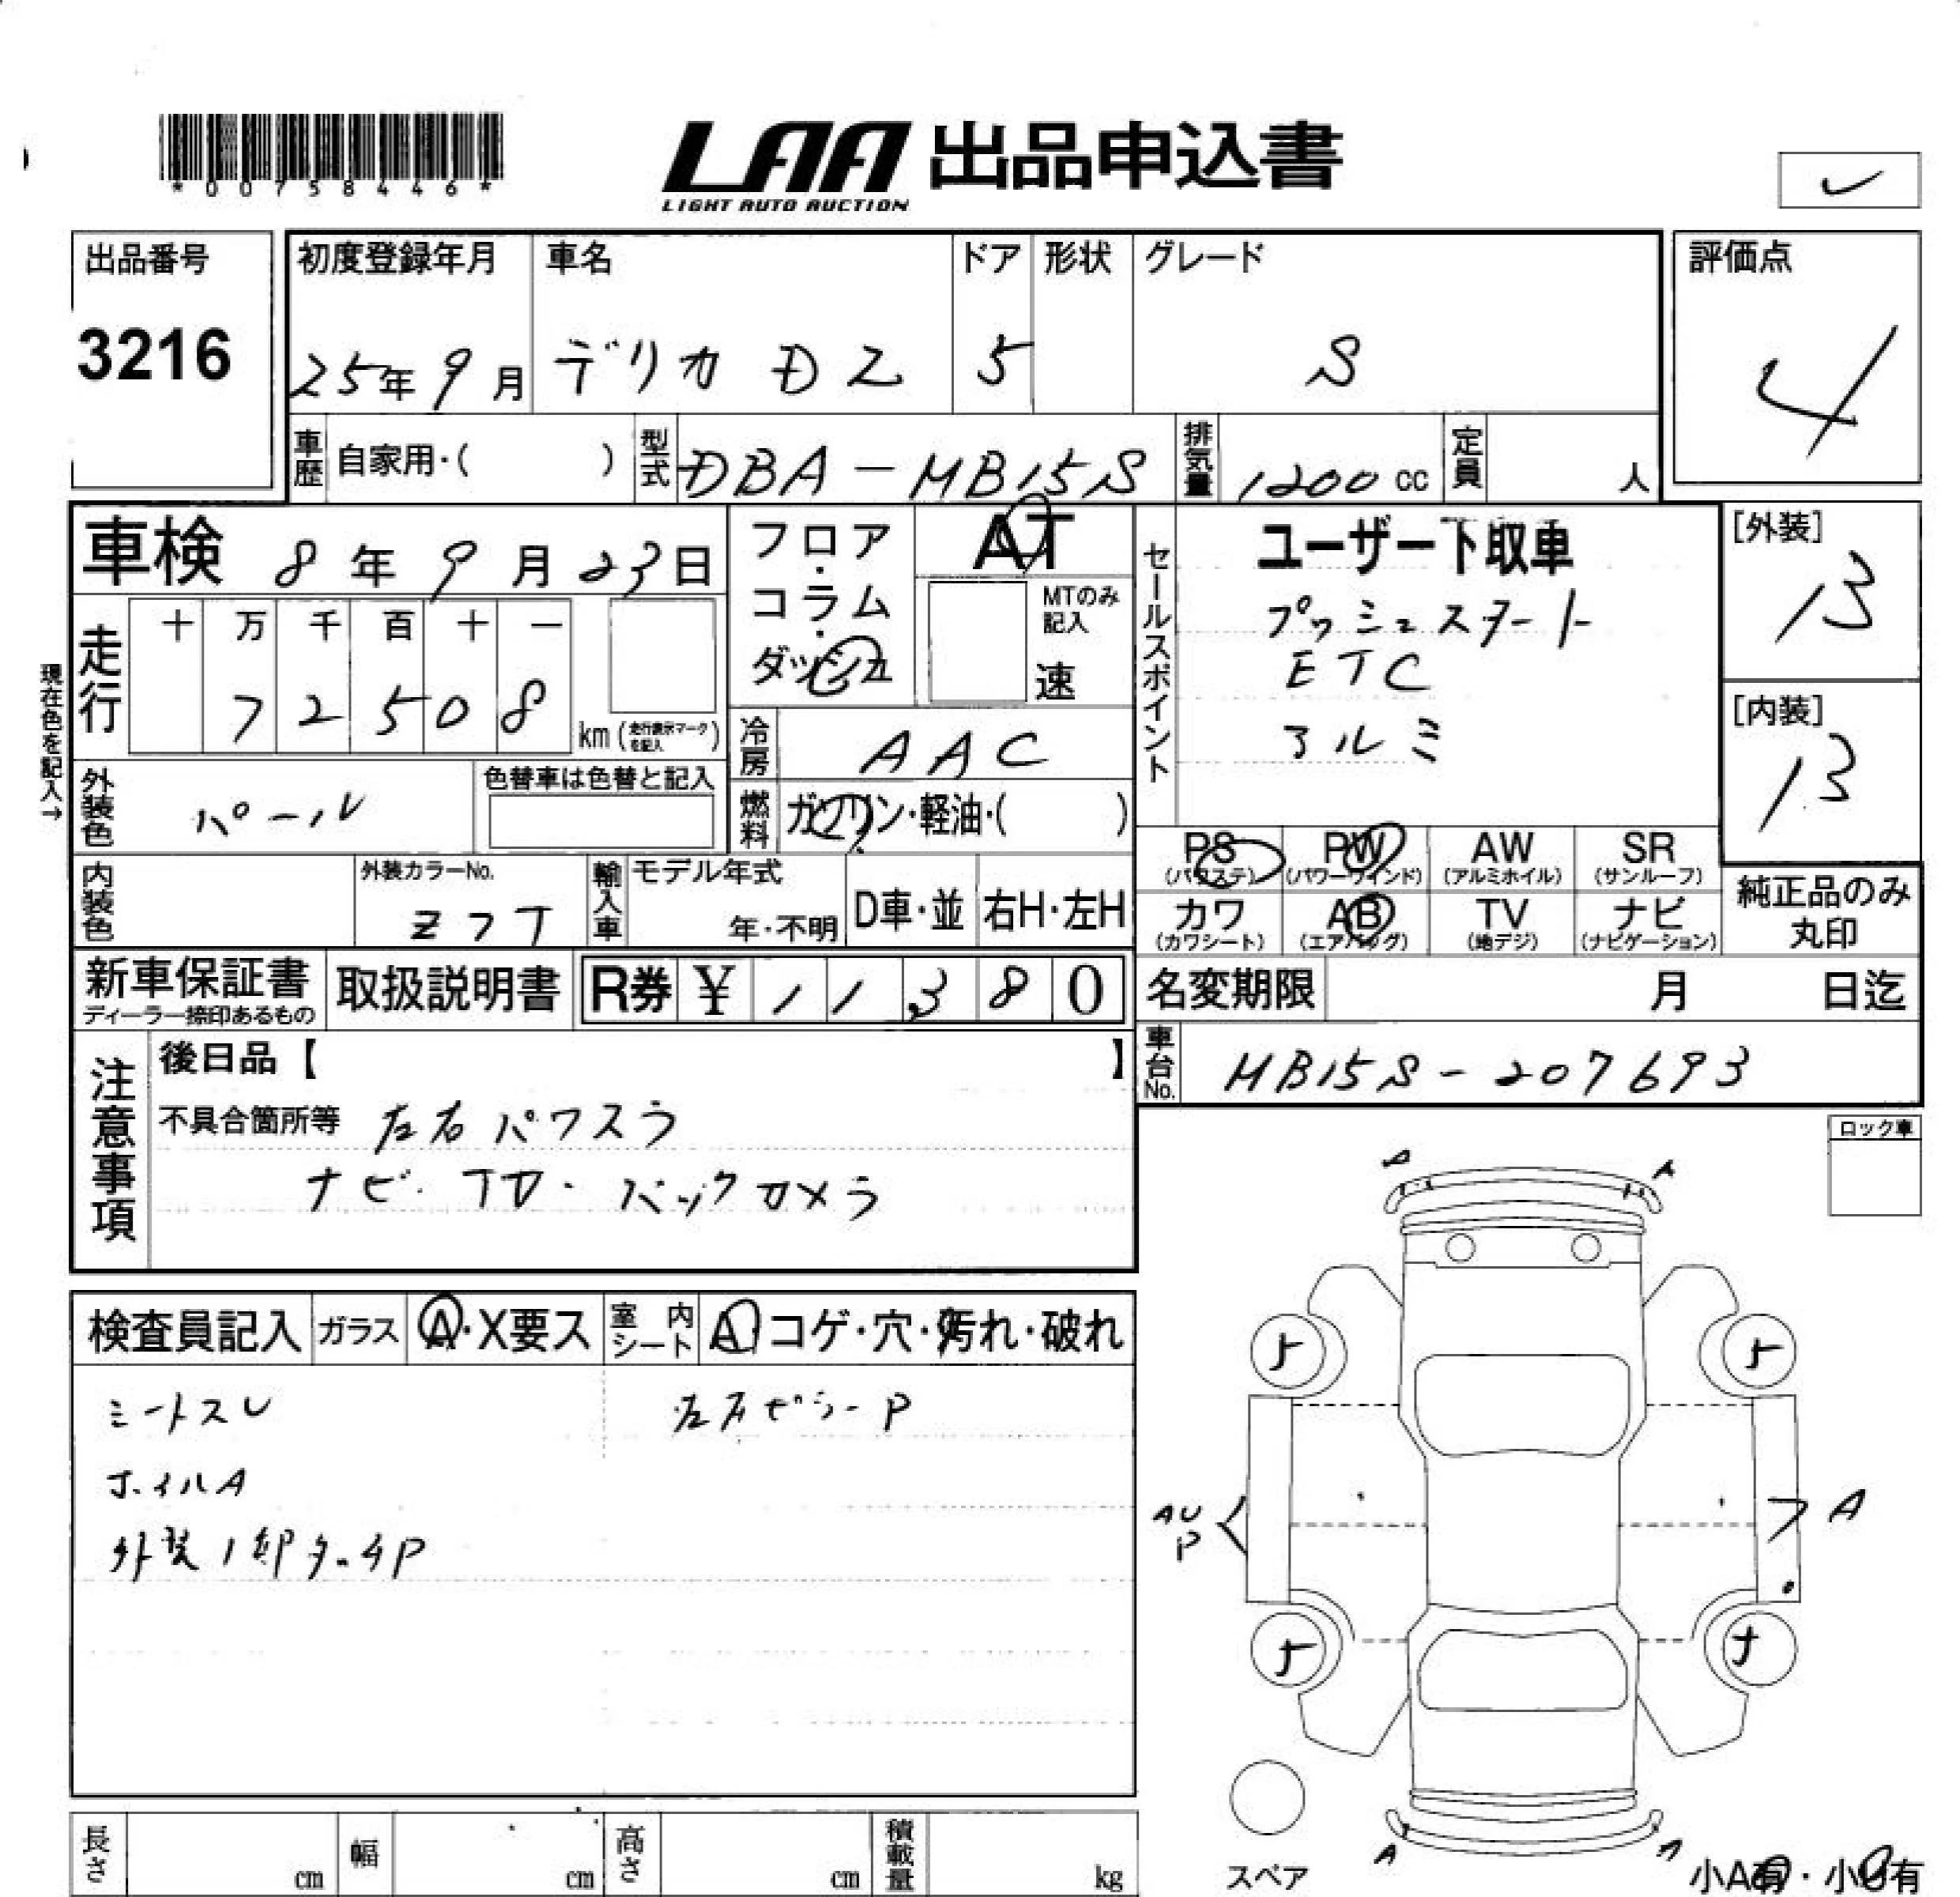 *00758446*
LAA 出品申込書
LIGHT AUTO AUCTION
出品番号
3216
初度登録年月 車名 ドア 形状 グレード
25年 9月 デリカ D2 5 S
評価点
4
車歴 自家用・( ) 型式 DBA-MB15S 排気量 1200 cc 定員 人
車検 8年 9月 23日
フロア・コラム・ダッシュ
AT
MTのみ記入
速
走行
十 万 千 百 十 一
7 2 5 0 8
km (走行表示マークを記入)
現在色を記入→
冷房 AAC
外装色 パール
色替車は色替と記入
燃料 ガソリン・軽油・( )
内装色
外装カラーNo.
Z7T
輸入車 モデル年式
年・不明
D車・並 右H・左H
セールスポイント
ユーザー下取車
プッシュスタート
ETC
アルミ
[外装]
13
[内装]
13
PS (パワステ) PW (パワーウインド) AW (アルミホイル) SR (サンルーフ)
カワ (カワシート) AB (エアバッグ) TV (地デジ) ナビ (ナビゲーション)
純正品のみ丸印
新車保証書 ディーラー捺印あるもの
取扱説明書
R券 ¥ 1 1 3 8 0
名変期限 月 日迄
車台No. MB15S-207693
注意事項
後日品【 】
不具合箇所等 左右パワスラ
ナビ・TV・バックカメラ
ロック車
検査員記入 ガラス A・X要ス 室内シート A コゲ・穴・汚れ・破れ
シートスレ 左右ピラーP
ホイルA
外装1部タッチP
A A
AU
P
A
A A
スペア
小A有・小U有
長さ cm 幅 cm 高さ cm 積載量 kg